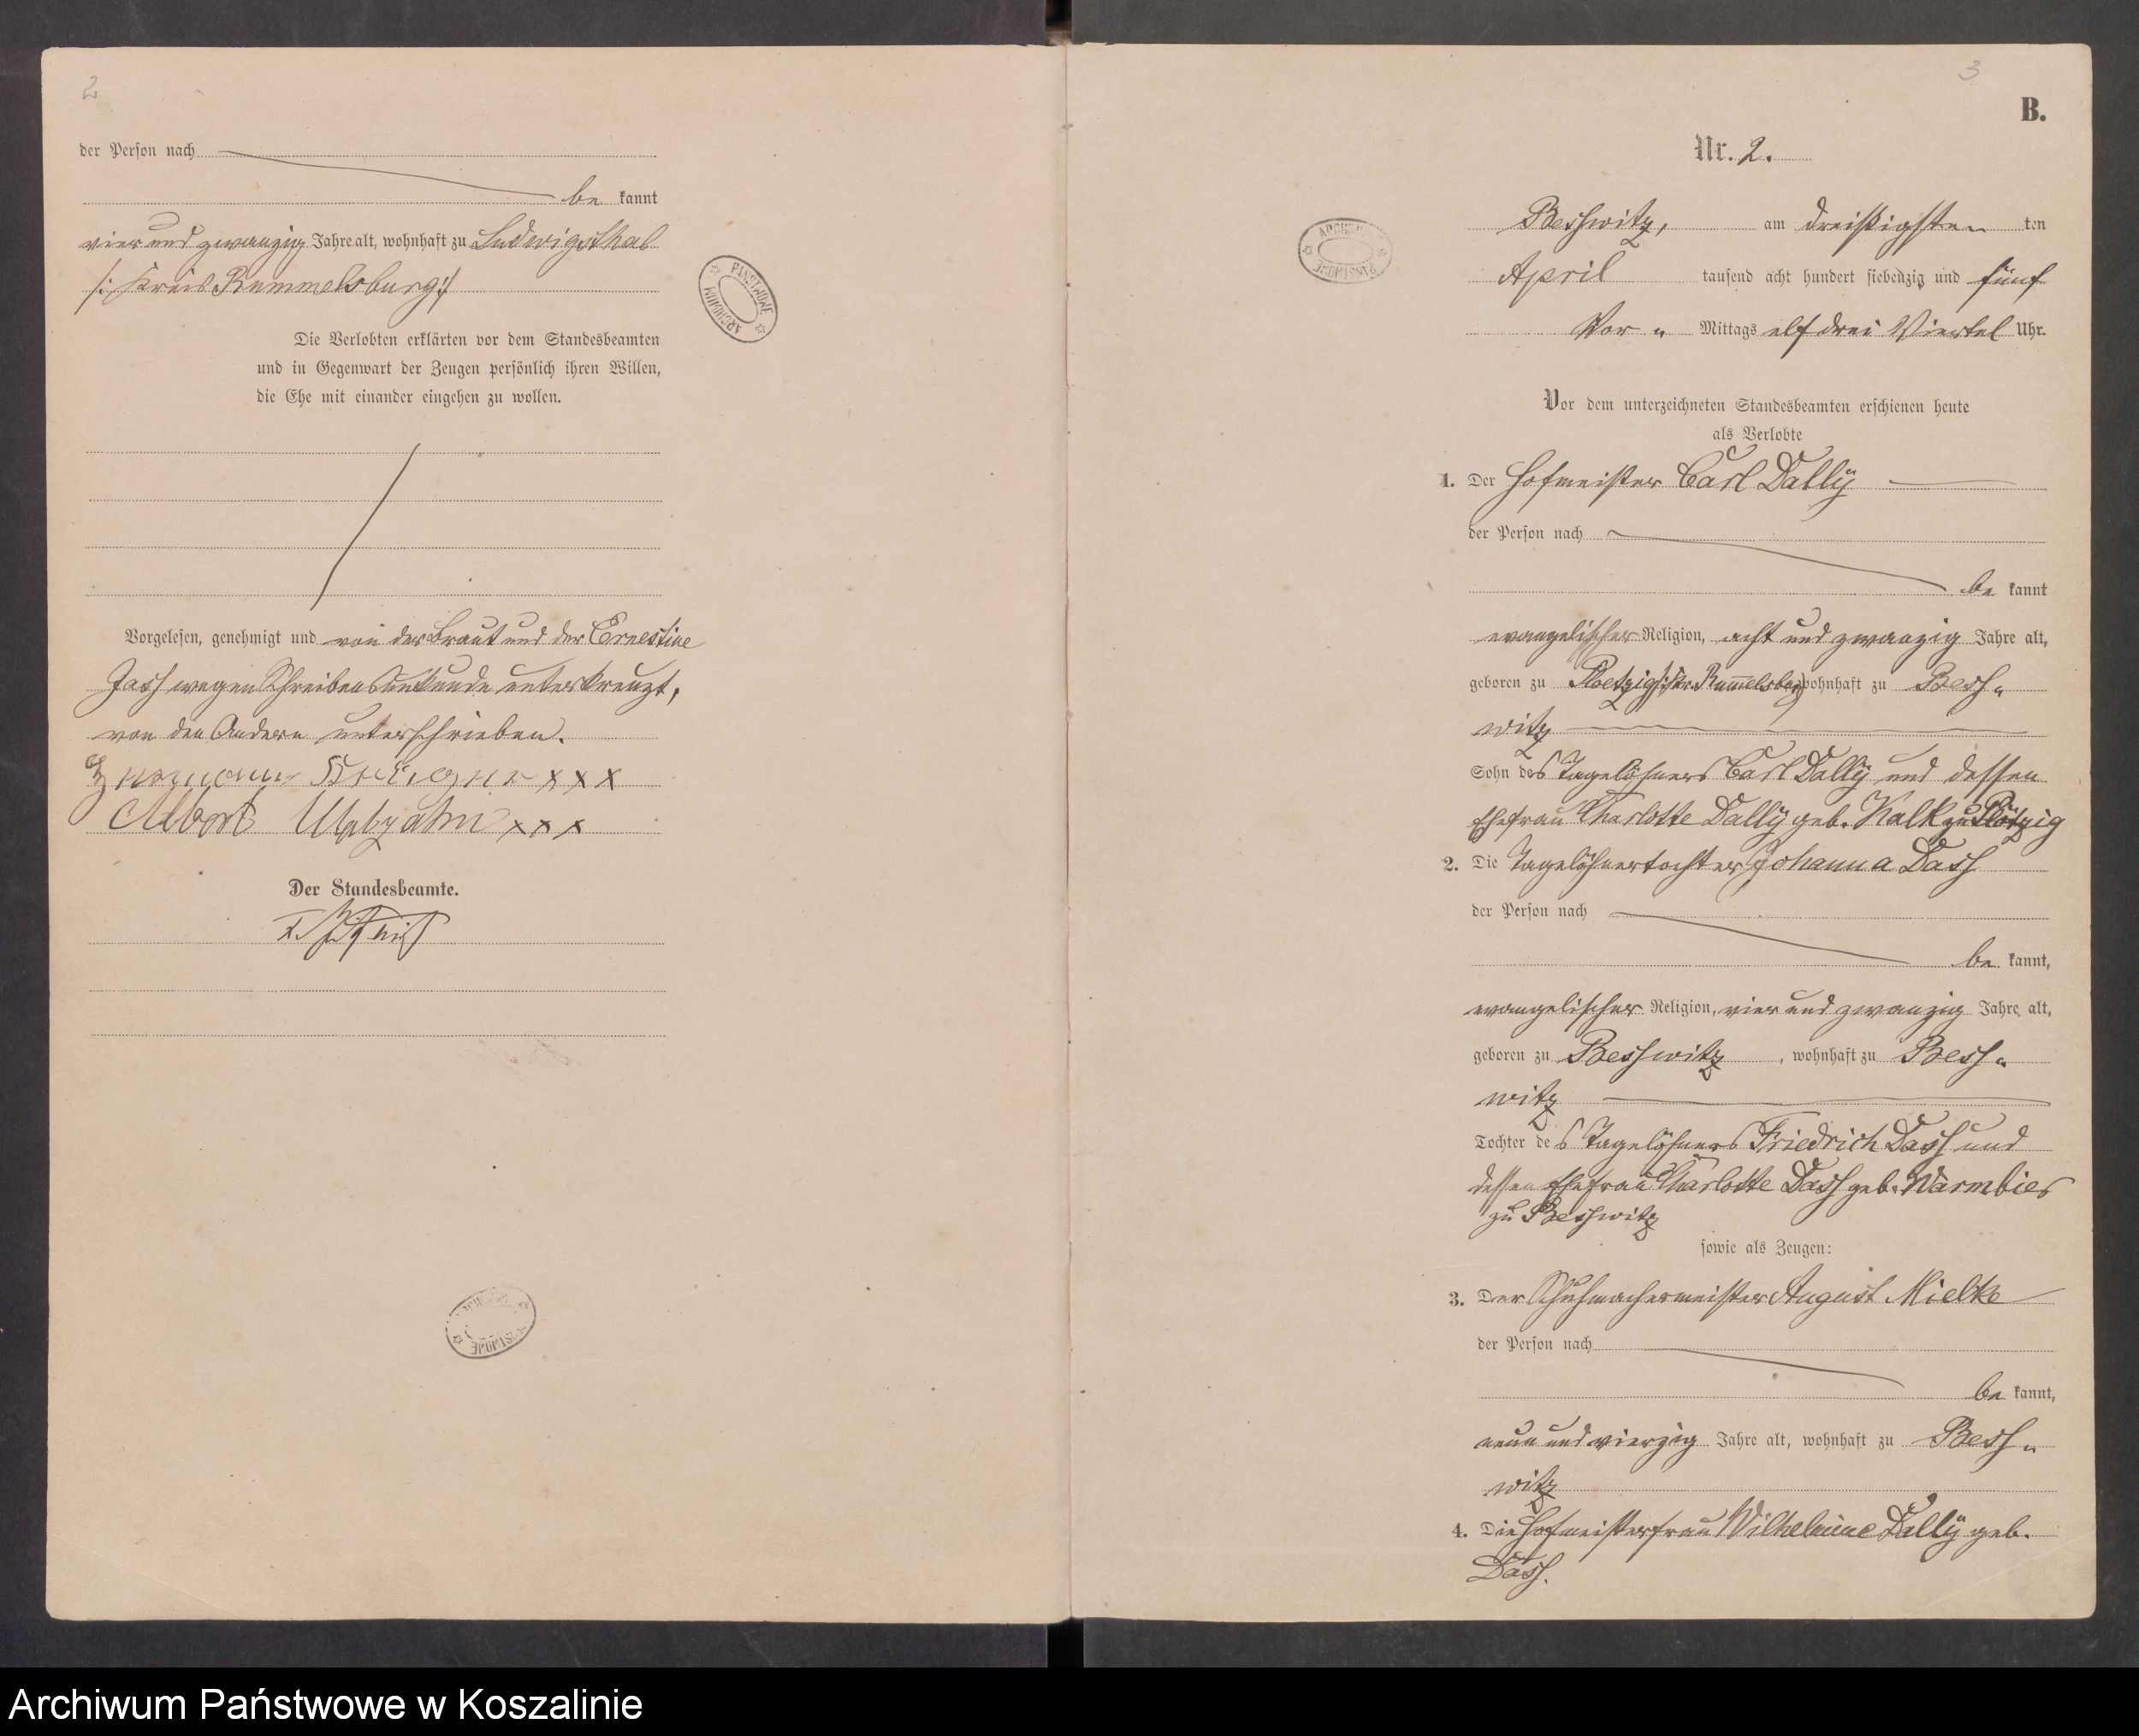 2
der Person nach
be kannt
vier und zwanzig Jahre alt, wohnhaft zu Ludwigsthal
/: Kreis Rummelsburg :/
Die Verlobten erklärten vor dem Standesbeamten
und in Gegenwart der Zeugen persönlich ihren Willen,
die Ehe mit einander eingehen zu wollen.
Vorgelesen, genehmigt und von der Braut und der Ernestine
Jass wegen Schreibensunkunde unterkreuzt,
von den Andern unterschrieben.
xxx
Albert xxx
Der Standesbeamte.
ARCHIWUM PAŃSTWOWE
3
B.
Nr. 2.
Besswitz, am dreißigsten ten
April tausend acht hundert siebenzig und fünf
Vor „ Mittags elf drei Viertel Uhr.
Vor dem unterzeichneten Standesbeamten erschienen heute
als Verlobte
1. Der Hofmeister Carl Dally
der Person nach
be kannt
evangelischer Religion, acht und zwanzig Jahre alt,
geboren zu Ploetzig /: Kr. Rummelsbg :/ wohnhaft zu Bess„
witz
Sohn des Tagelöhners Carl Dally und dessen
Ehefrau Charlotte Dally geb. Kalk zu Plötzig
2. Die Tagelöhnertochter Johanna Dass
der Person nach
be kannt,
evangelischer Religion, vier und zwanzig Jahre alt,
geboren zu Besswitz, wohnhaft zu Bess„
witz
Tochter des Tagelöhners Friedrich Dass und
dessen Ehefrau Charlotte Dass geb. Warmbier
zu Besswitz
sowie als Zeugen:
3. Der Schuhmachermeister August Mielke
der Person nach
be kannt,
neun und vierzig Jahre alt, wohnhaft zu Bess„
witz
4. Die Hofmeisterfrau Wilhelmine Dally geb.
Dass.
Archiwum Państwowe w Koszalinie